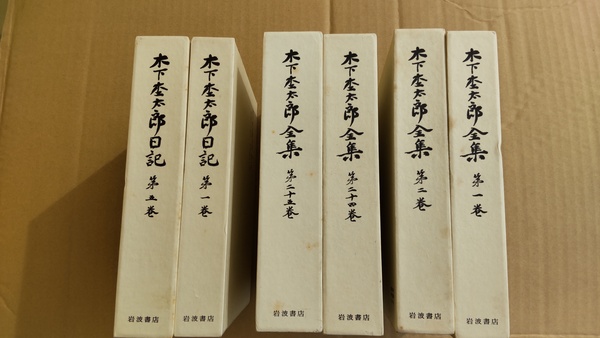 木下杢太郎日記 第五巻
岩波書店
木下杢太郎日記 第一巻
岩波書店
木下杢太郎全集 第二十五巻
岩波書店
木下杢太郎全集 第二十四巻
岩波書店
木下杢太郎全集 第二巻
岩波書店
木下杢太郎全集 第一巻
岩波書店